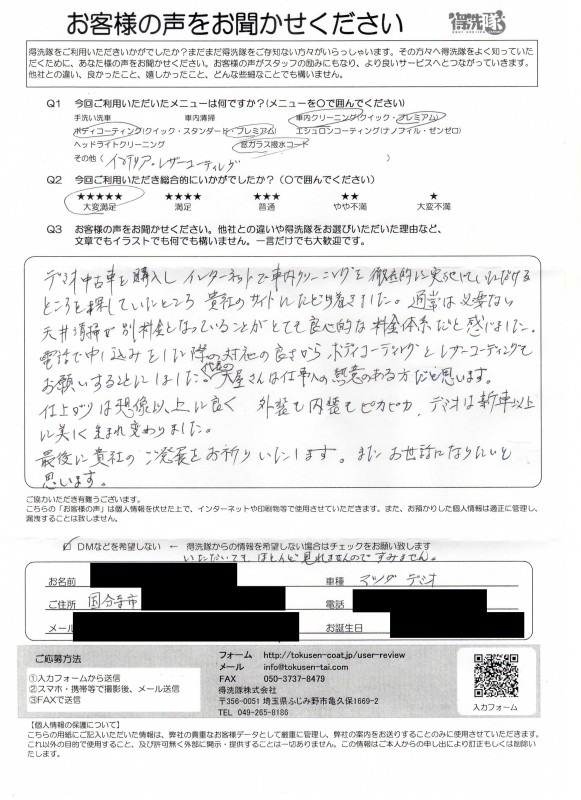 お客様の声をお聞かせください
得洗隊
得洗隊をご利用いただきいかがでしたか？まだまだ得洗隊をご存知ない方々がいらっしゃいます。その方々へ得洗隊をよく知っていた
だくために、あなた様の声をお聞かせください。お客様の声がスタッフの励みにもなり、より良いサービスへとつながっていきます。
他社との違い、良かったこと、嬉しかったこと、どんな些細なことでも構いません。
Q1 今回ご利用いただいたメニューは何ですか？(メニューを〇で囲んでください)
手洗い洗車 車内清掃 車内クリーニング(クイック・プレミアム)
ボディコーティング(クイック・スタンダード・プレミアム) エシュロンコーティング(ナノフィル・ゼンゼロ)
ヘッドライトクリーニング 窓ガラス撥水コート
その他(インテリア・レザーコーティング)
Q2 今回ご利用いただき総合的にいかがでしたか？(〇で囲んでください)
★★★★★ ★★★★ ★★★ ★★ ★
大変満足 満足 普通 やや不満 大変不満
Q3 お客様の声をお聞かせください。他社との違いや得洗隊をお選びいただいた理由など、
文章でもイラストでも何でも構いません。一言だけでも大歓迎です。
デミオ中古車を購入し インターネットで車内クリーニングを徹底的に実施していただける
ところを探していたところ 貴社のサイトにたどり着きました。通常は必要ない
天井清掃が別料金となっていることがとても良心的な料金体系だと感じました。
電話で申し込みをした際の対応の良さからボディコーティングとレザーコーティングも
お願いすることにしました。代表の大屋さんは仕事への熱意のある方だと思います。
仕上がりは想像以上に良く 外装も内装もピカピカ、デミオは新車以上
に美しく生まれ変わりました。
最後に貴社のご発展をお祈りいたします。またお世話になりたいと
思います。
ご協力いただき有難うございます。
こちらの「お客様の声」は個人情報を伏せた上で、インターネットや印刷物等で使用させていただきます。また、お預かりした個人情報は適正に管理し、
漏洩することは致しません。
DMなどを希望しない ← 得洗隊からの情報を希望しない場合はチェックをお願い致します
いただいても、ほとんど見れませんので すみません。
お名前 車種 マツダ デミオ
ご住所 国分寺市 電話
メール お誕生日
ご応募方法
①入力フォームから送信
②スマホ・携帯等で撮影後、メール送信
③FAXで送信
フォーム http://tokusen-coat.jp/user-review
メール info@tokusen-tai.com
FAX 050-3737-8479
得洗隊株式会社
〒356-0051 埼玉県ふじみ野市亀久保1669-2
TEL 049-265-8186
入力フォーム
【個人情報の保護について】
こちらの用紙にご記入いただいた情報は、弊社の貴重なお客様データとして厳重に管理し、弊社の案内をお送りすることのみに使用させていただきます。
これ以外の目的で使用すること、及び許可無く外部に開示・提供することは一切ありません。この情報はご本人からの申し出により訂正もしくは削除い
たします。